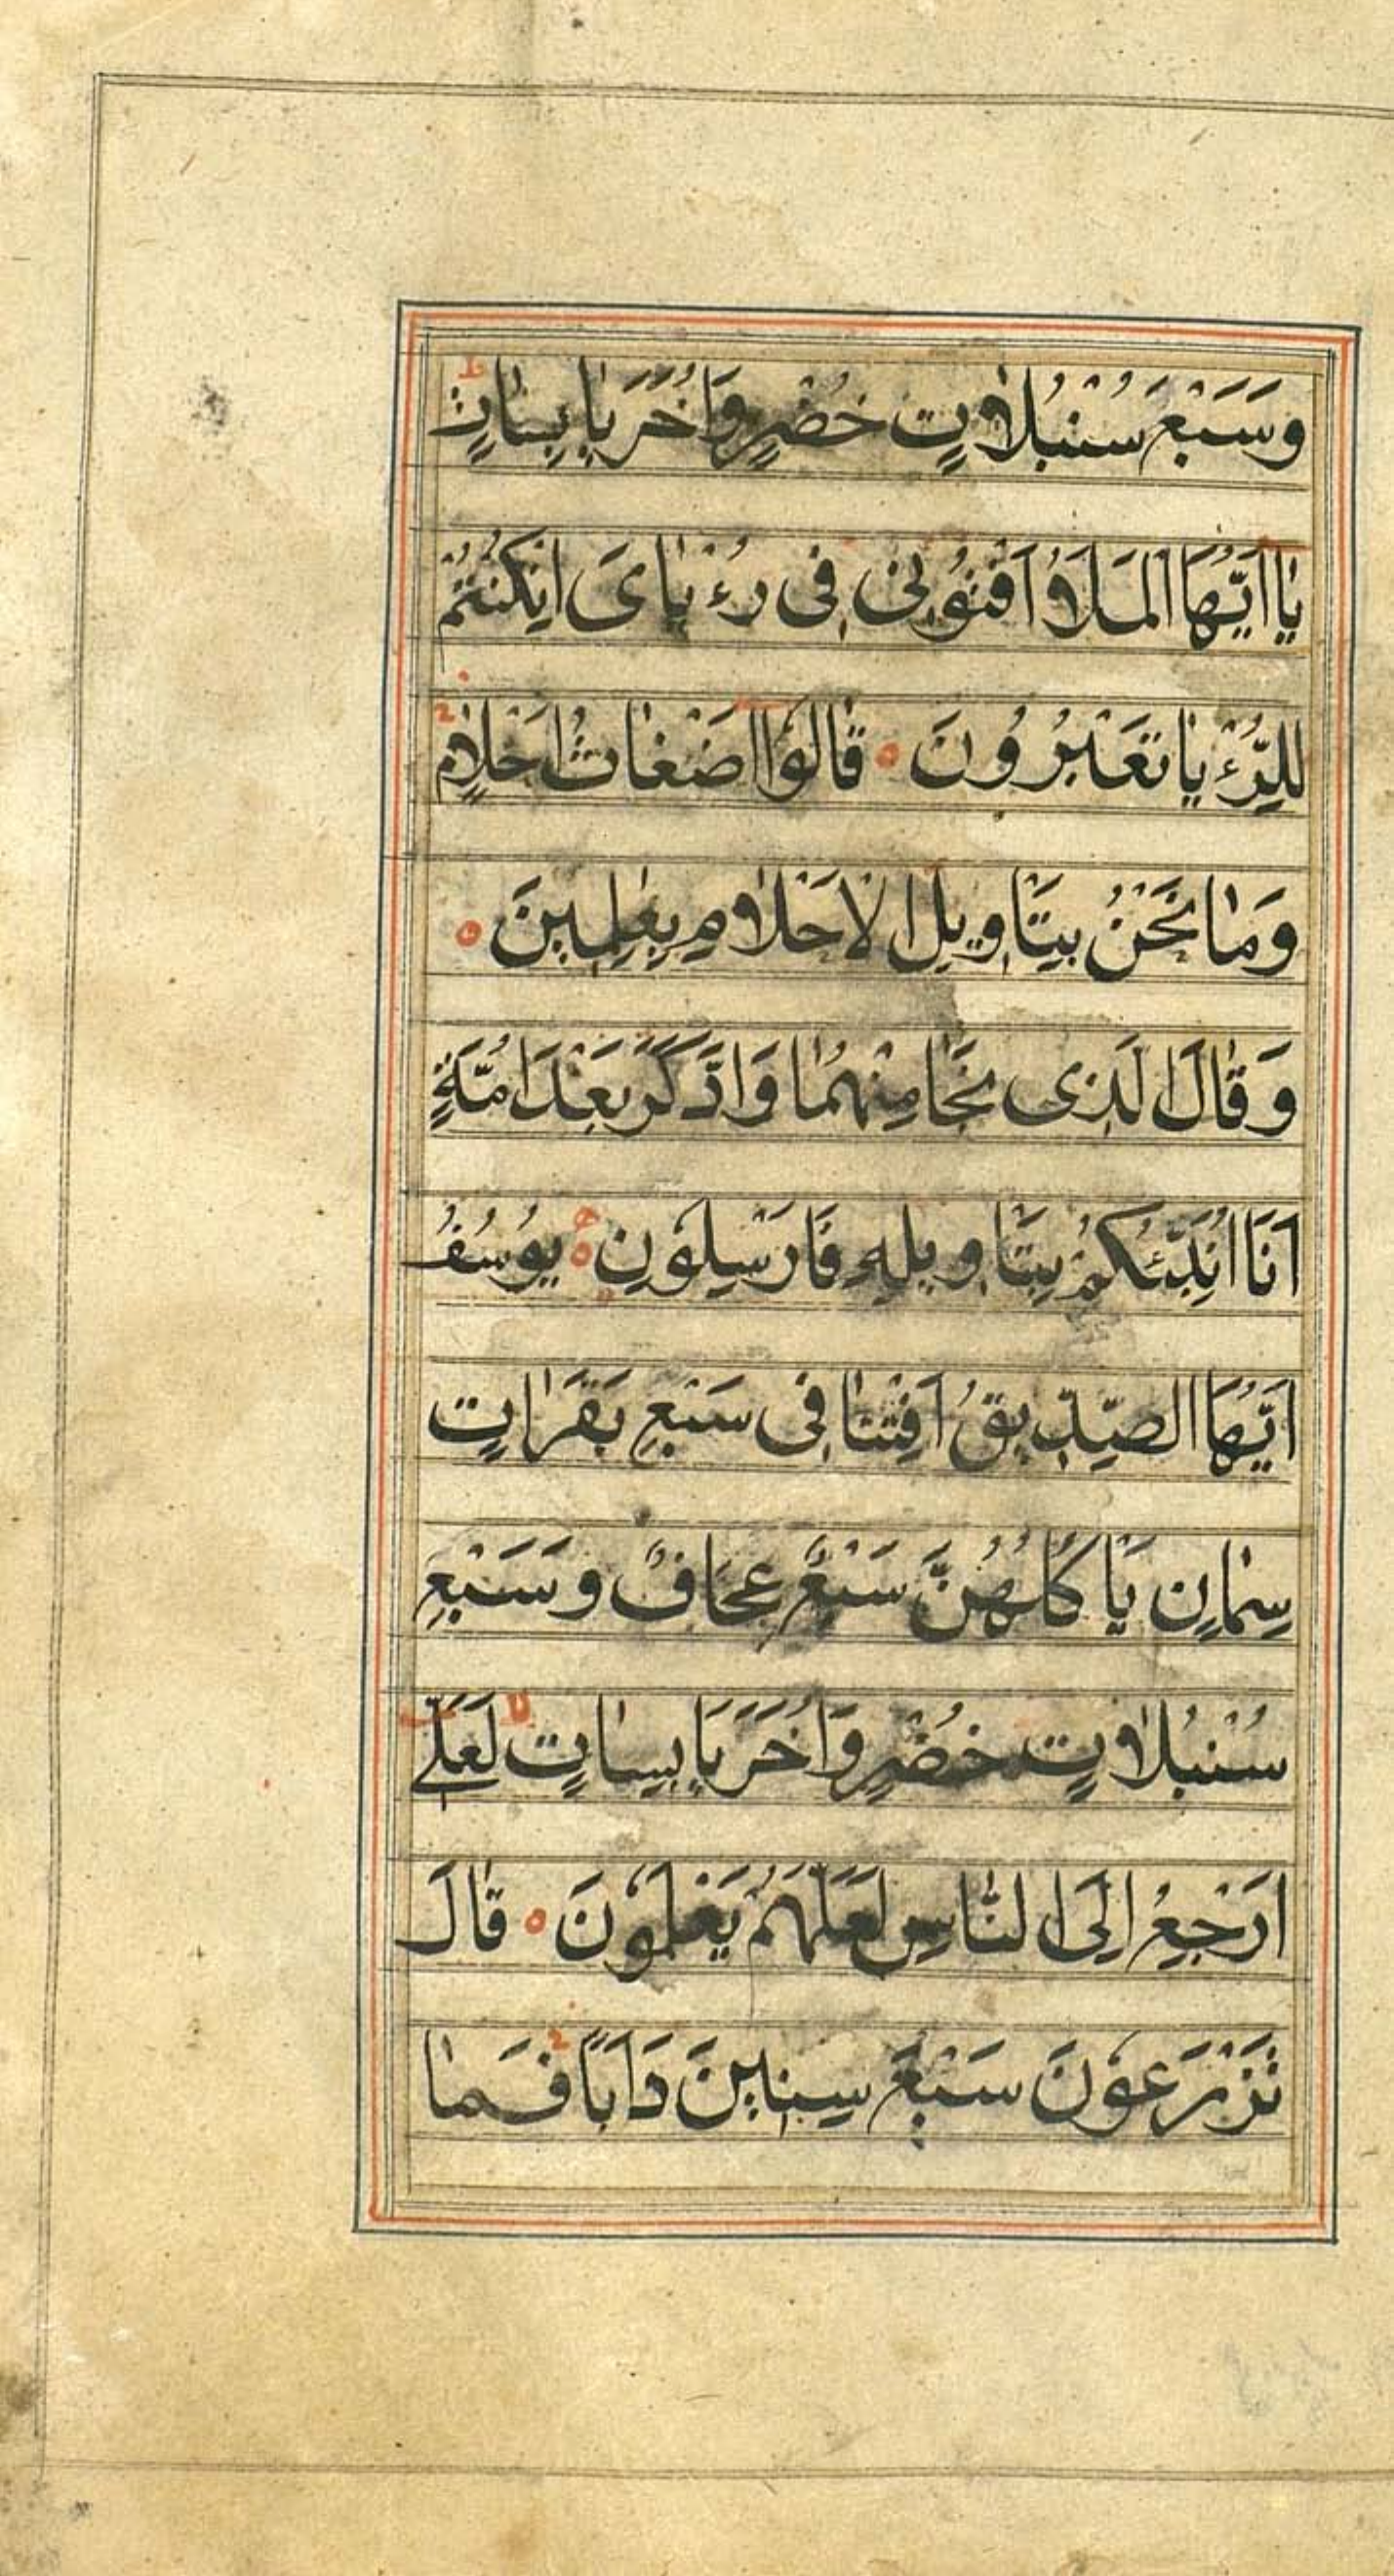 وَسَبْعَ سُنْبُلاٰتٍ خُضْرٍ وَاُخَرَ يٰابِسٰاتٍ ط
يٰا اَيُّهَا الْمَلَاُ اَفْتُوْنِيْ فِي رُءْيٰايَ اِنْ كُنْتُمْ
لِلرُّءْيٰا تَعْبُرُونَ ۝ قٰالُوْٓا اَضْغٰاثُ اَحْلٰامٍ
وَمٰا نَحْنُ بِتَاْوِيلِ الْاَحْلٰامِ بِعٰلِمِينَ ۝
وَقٰالَ الَّذِى نَجَا مِنْهُمٰا وَادَّكَرَ بَعْدَ اُمَّةٍ
اَنَا اُنَبِّئُكُمْ بِتَاْوِيلِهِ فَاَرْسِلُوْنِ ۝ يُوسُفُ
اَيُّهَا الصِّدِّيقُ اَفْتِنٰا فِى سَبْعِ بَقَرٰاتٍ
سِمٰانٍ يَاْكُلُهُنَّ سَبْعٌ عِجَافٌ وَسَبْعِ
سُنْبُلاٰتٍ خُضْرٍ وَاُخَرَ يَابِسٰاتٍ لا لَعَلِّے
اَرْجِعُ اِلَى النّٰاسِ لَعَلَّهُمْ يَعْلَمُوْنَ ۝ قٰالَ
تَزْرَعُوْنَ سَبْعَ سِنِينَ دَاَبًا فَمٰا